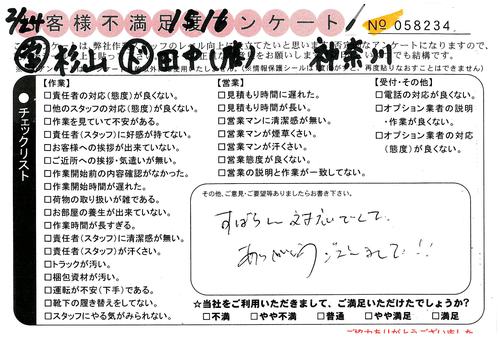 2/24 客様不満足度アンケート 1516 No 058234
杉山 田中 神奈川
チェックリスト
【作業】
□責任者の対応(態度)が良くない。
□他のスタッフの対応(態度)が良くない。
□作業を見ていて不安がある。
□責任者(スタッフ)に好感が持てない。
□お客様への挨拶が出来ていない。
□ご近所への挨拶・気遣いが無い。
□作業開始前の内容確認がなかった。
□作業開始時間が遅れた。
□荷物の取り扱いが雑である。
□お部屋の養生が出来ていない。
□作業時間が長すぎる。
□責任者(スタッフ)に清潔感が無い。
□責任者(スタッフ)が汗くさい。
□トラックが汚い。
□梱包資材が汚い。
□運転が不安(下手)である。
□靴下の履き替えをしてない。
□スタッフにやる気がみられない。
【営業】
□見積もり時間に遅れた。
□見積もり時間が長い。
□営業マンに清潔感が無い。
□営業マンが煙草くさい。
□営業マンが汗くさい。
□営業態度が良くない。
□営業の説明と作業が一致してない。
【受付・その他】
□電話の対応が良くない。
□オプション業者の説明
・作業が良くない。
□オプション業者の対応
(態度)が良くない。
その他、ご意見・ご要望等ありましたらお書き下さい。
すばらしい対応でした。
ありがとうございました!!
☆当社をご利用いただきまして、ご満足いただけたでしょうか?
□不満 □やや不満 □普通 □やや満足 □満足
ご協力ありがとうございました